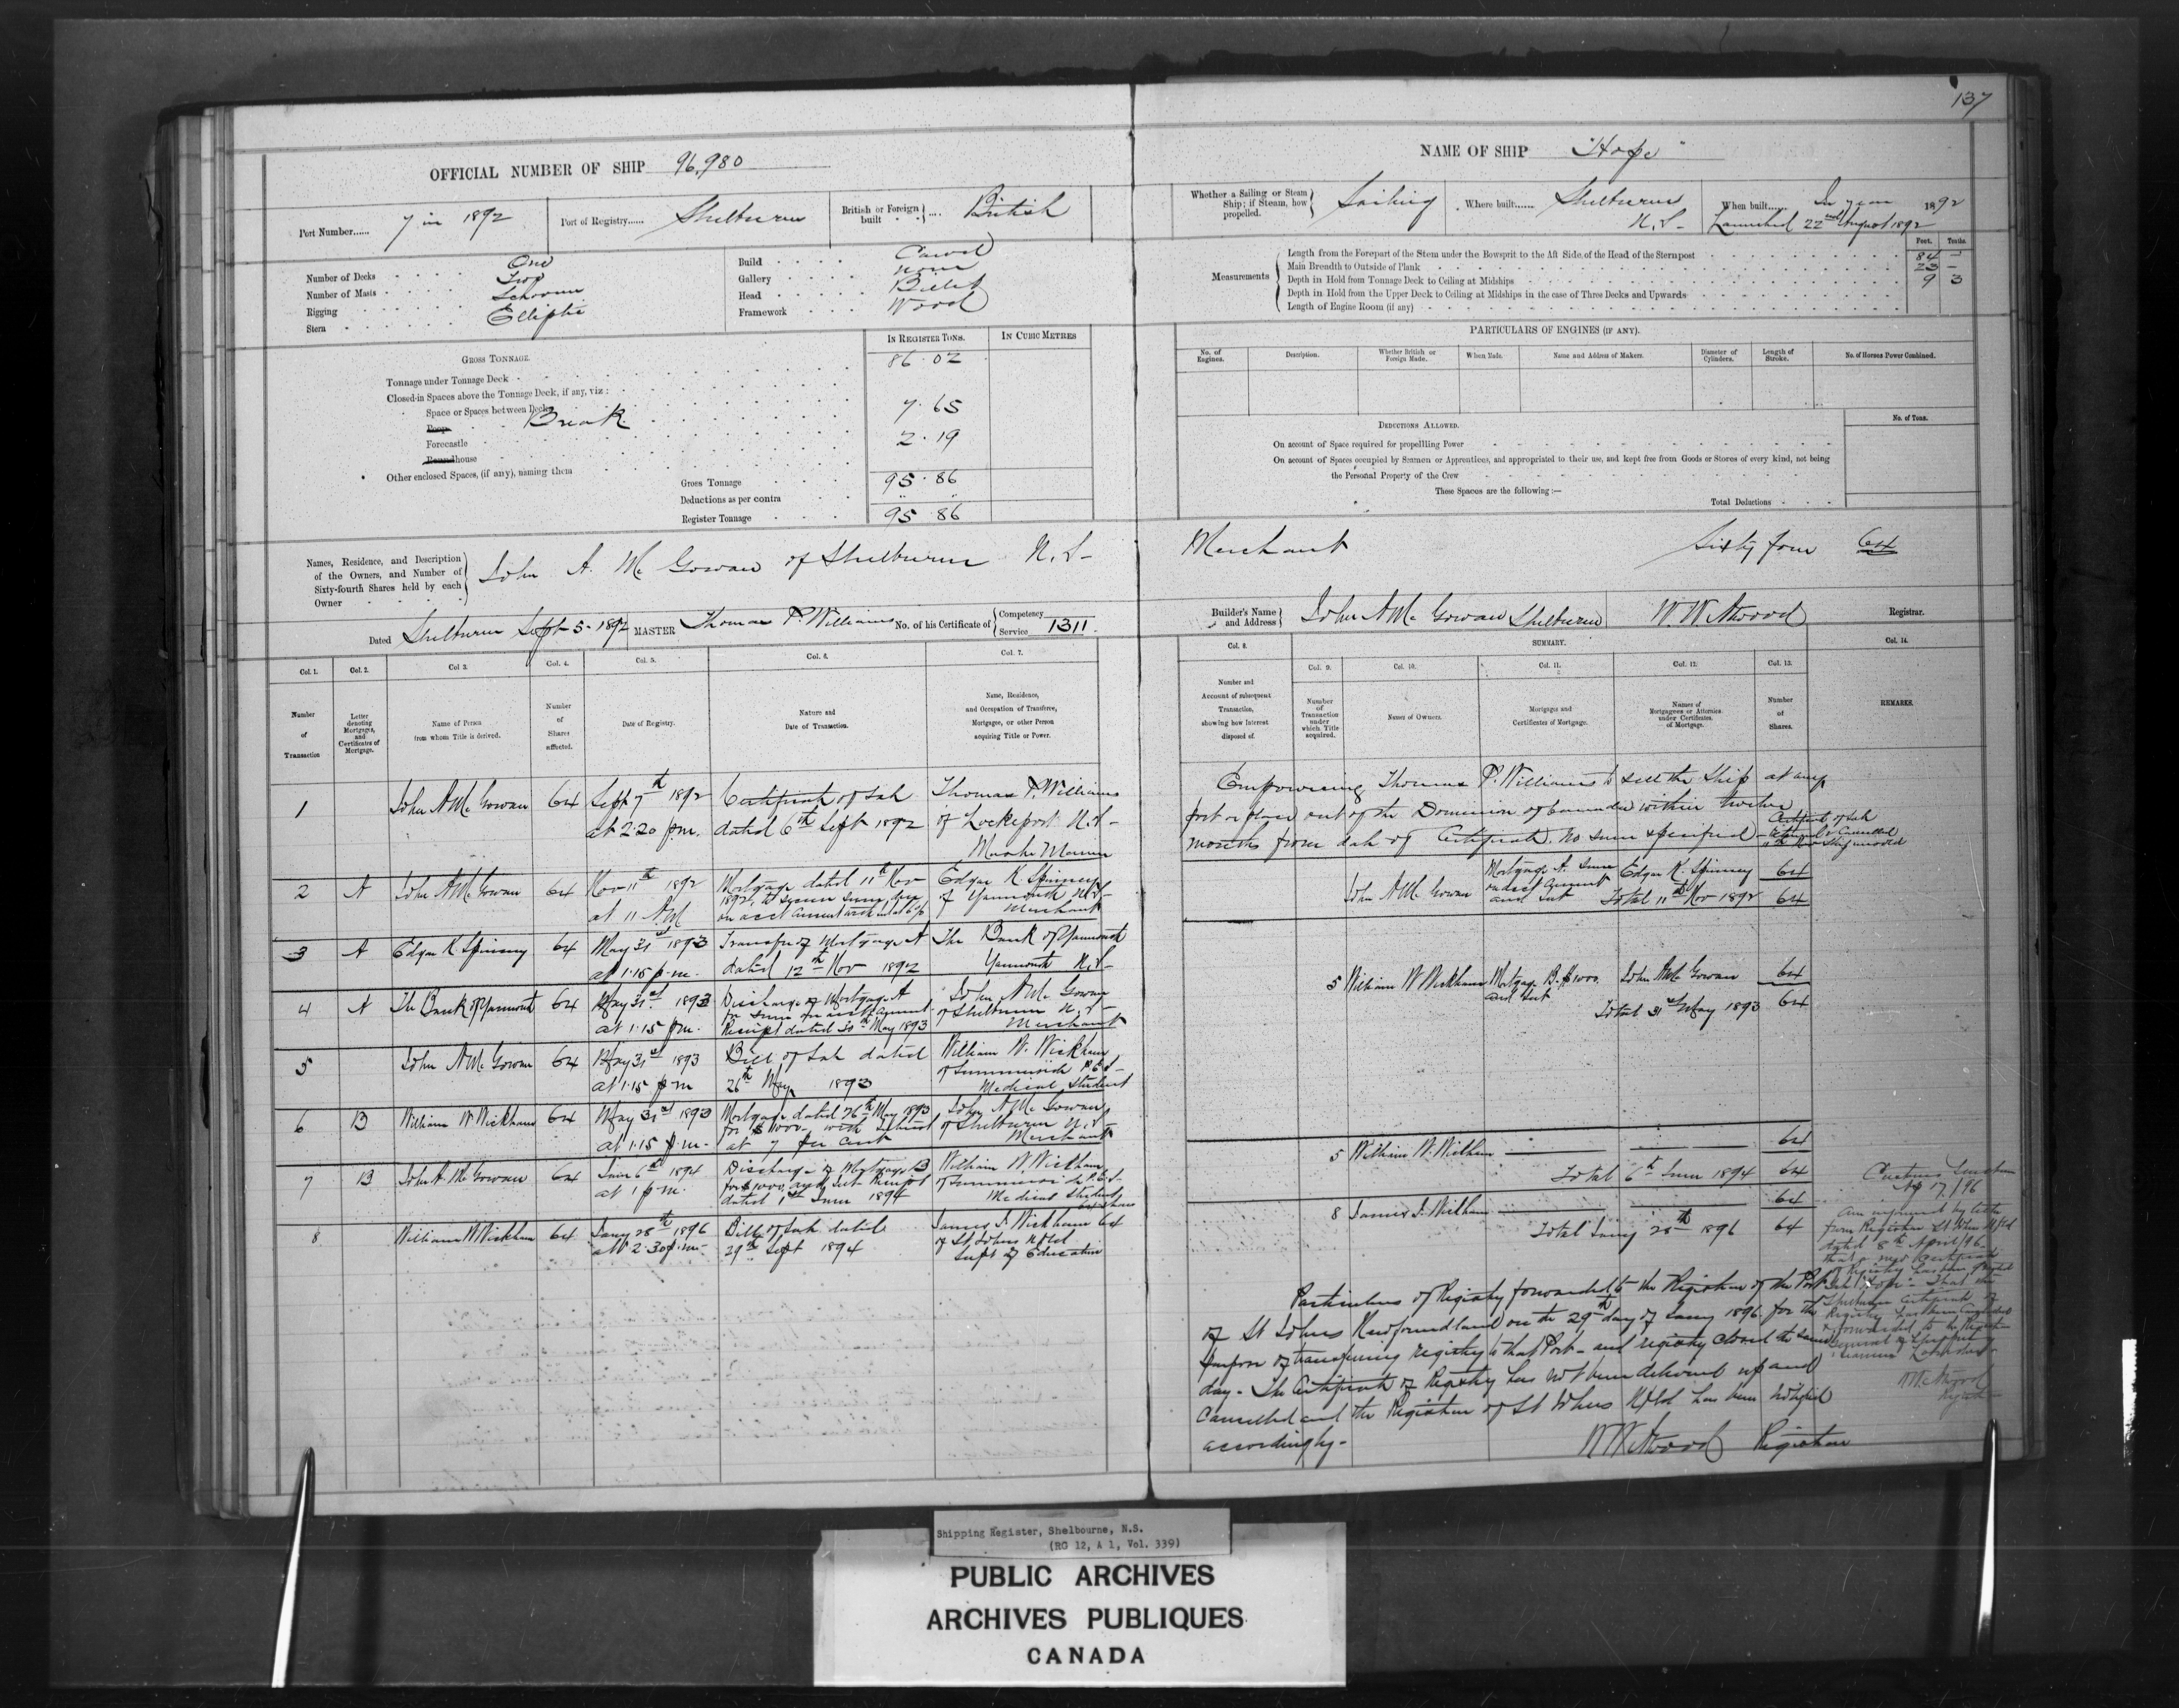 137
OFFICIAL NUMBER OF SHIP 96,980
NAME OF SHIP "Hope"
Port Number...... 7 in 1892
Port of Registry...... Shelburne
British or Foreign built .... British
Whether a Sailing or Steam Ship; if Steam, how propelled. Sailing
Where built...... Shelburne N.S-
When built...... In year 1892
Launched 22nd August 1892
Number of Decks One
Number of Masts Two
Rigging Schooner
Stern Elliptic
Build Carvel
Gallery none
Head Billet
Framework Wood
Feet. Tenths.
Measurements
Length from the Forepart of the Stem under the Bowsprit to the Aft Side of the Head of the Sternpost 84 –
Main Breadth to Outside of Plank 23 –
Depth in Hold from Tonnage Deck to Ceiling at Midships 9 3
Depth in Hold from the Upper Deck to Ceiling at Midships in the case of Three Decks and Upwards
Length of Engine Room (if any)
GROSS TONNAGE.
IN REGISTER TONS. IN CUBIC METRES
Tonnage under Tonnage Deck 86.02
Closed-in Spaces above the Tonnage Deck, if any, viz:
Space or Spaces between Decks
Poop Break 7.65
Forecastle 2.19
Roundhouse
Other enclosed Spaces, (if any), naming them
Gross Tonnage 95.86
Deductions as per contra " "
Register Tonnage 95.86
PARTICULARS OF ENGINES (IF ANY).
No. of Engines. Description. Whether British or Foreign Made. When Made. Name and Address of Makers. Diameter of Cylinders. Length of Stroke. No. of Horses Power Combined.
DEDUCTIONS ALLOWED.
No. of Tons.
On account of Space required for propelling Power
On account of Spaces occupied by Seamen or Apprentices, and appropriated to their use, and kept free from Goods or Stores of every kind, not being
the Personal Property of the Crew
These Spaces are the following:—
Total Deductions
Names, Residence, and Description of the Owners, and Number of Sixty-fourth Shares held by each Owner
John A. Mc Gowan of Shelburne N.S- Merchant Sixty four 64
Dated Shelburne Sept 5- 1892 MASTER Thomas P. Williams No. of his Certificate of Competency Service 1311.
Builder's Name and Address John A Mc Gowan Shelburne W. W Atwood Registrar.
Col. 1. Col. 2. Col 3. Col. 4. Col. 5. Col. 6. Col. 7.
Number of Transaction
Letter denoting Mortgages, and Certificates of Mortgage.
Name of Person from whom Title is derived.
Number of Shares affected.
Date of Registry.
Nature and Date of Transaction.
Name, Residence, and Occupation of Transferee, Mortgagee, or other Person acquiring Title or Power.
Col. 8. SUMMARY. Col. 14.
Col. 9. Col. 10. Col. 11. Col. 12. Col. 13.
Number and Account of subsequent Transaction, showing how Interest disposed of.
Number of Transaction under which Title acquired.
Names of Owners.
Mortgages and Certificates of Mortgage.
Names of Mortgagees or Attornies under Certificates of Mortgage.
Number of Shares.
REMARKS.
1 John A Mc Gowan 64 Sept 7th 1892 Certificate of Sale Thomas P. Williams
at 2.20 p.m. dated 6th Sept 1892 of Lockeport N.S-
Master Mariner
Empowering Thomas P. Williams to sell the Ship at any
port or place out of the Dominion of Canada within twelve
months from date of Certificate. No sum specified -
Certificate of Sale
2 A John A Mc Gowan 64 Nov 11th 1892 Mortgage dated 11th Nov Edgar K Spinney
at 11 AM 1892, to secure sums due of Yarmouth N.S-
on acct Current with int at 6 % Merchant
John A Mc Gowan Mortgage A. Sum Edgar K. Spinney 64
on acct Current and Int Total 11th Nov 1892 64
3 A Edgar K. Spinney 64 May 31st 1893 Transfer of Mortgage A The Bank of Yarmouth
at 1.15 p.m. dated 12th Nov 1892 Yarmouth N.S-
4 A The Bank of Yarmouth 64 May 31st 1893 Discharge of Mortgage A John A Mc Gowan
at 1.15 p.m. for sums on acct Current of Shelburne N.S-
Receipt dated 30th May 1893 Merchant
5 William W Wickham Mortgage B. $1000. John A Mc Gowan 64
and Int Total 31st May 1893 64
5 John A Mc Gowan 64 May 31st 1893 Bill of Sale dated William W. Wickham
at 1.15 p m 26th May 1893 of Summerside P.E.I-
Medical Student
6 B William W Wickham 64 May 31st 1893 Mortgage dated 26th May 1893 John A Mc Gowan
at 1.15 p.m- for $1000- with Interest of Shelburne N.S-
at 7 per cent Merchant
7 B John A. Mc Gowan 64 June 6th 1894 Discharge of Mortgage B William W Wickham
at 1 p m. for $1000 and Int Receipt of Summerside P.E.I-
dated 1st June 1894 Medical Student
5 William W. Wickham 64
Total 6th June 1894 64
8 William W Wickham 64 Jany 28th 1896 Bill of Sale dated James J. Wickham 64
at 2.30 p.m- 29th Sept 1894 of St Johns Nfld
Supt of Education
8 James J. Wickham 64
Total Jany 28th 1896 64
Particulars of Registry forwarded to the Registrar of the Port
of St Johns Newfoundland on the 29th day of Jany 1896 for the
purpose of transferring registry to that Port- and registry closed the same
day- The Certificate of Registry has not been delivered up and
Cancelled and the Registrar of St Johns Nfld has been notified
accordingly-
W W Atwood Registrar
Ap 17/96
Am informed by letter
from Registrar St Johns Nfld
dated 8th April/96
that a new Certificate
of Registry has been
"Hope"- That the
Shelburne Certificate of
Registry has been Cancelled
& forwarded to the Registrar
General of Shipping &
Seamen London-
W W Atwood
Registrar
Shipping Register, Shelbourne, N.S.
(RG 12, A 1, Vol. 339)
PUBLIC ARCHIVES
ARCHIVES PUBLIQUES
CANADA